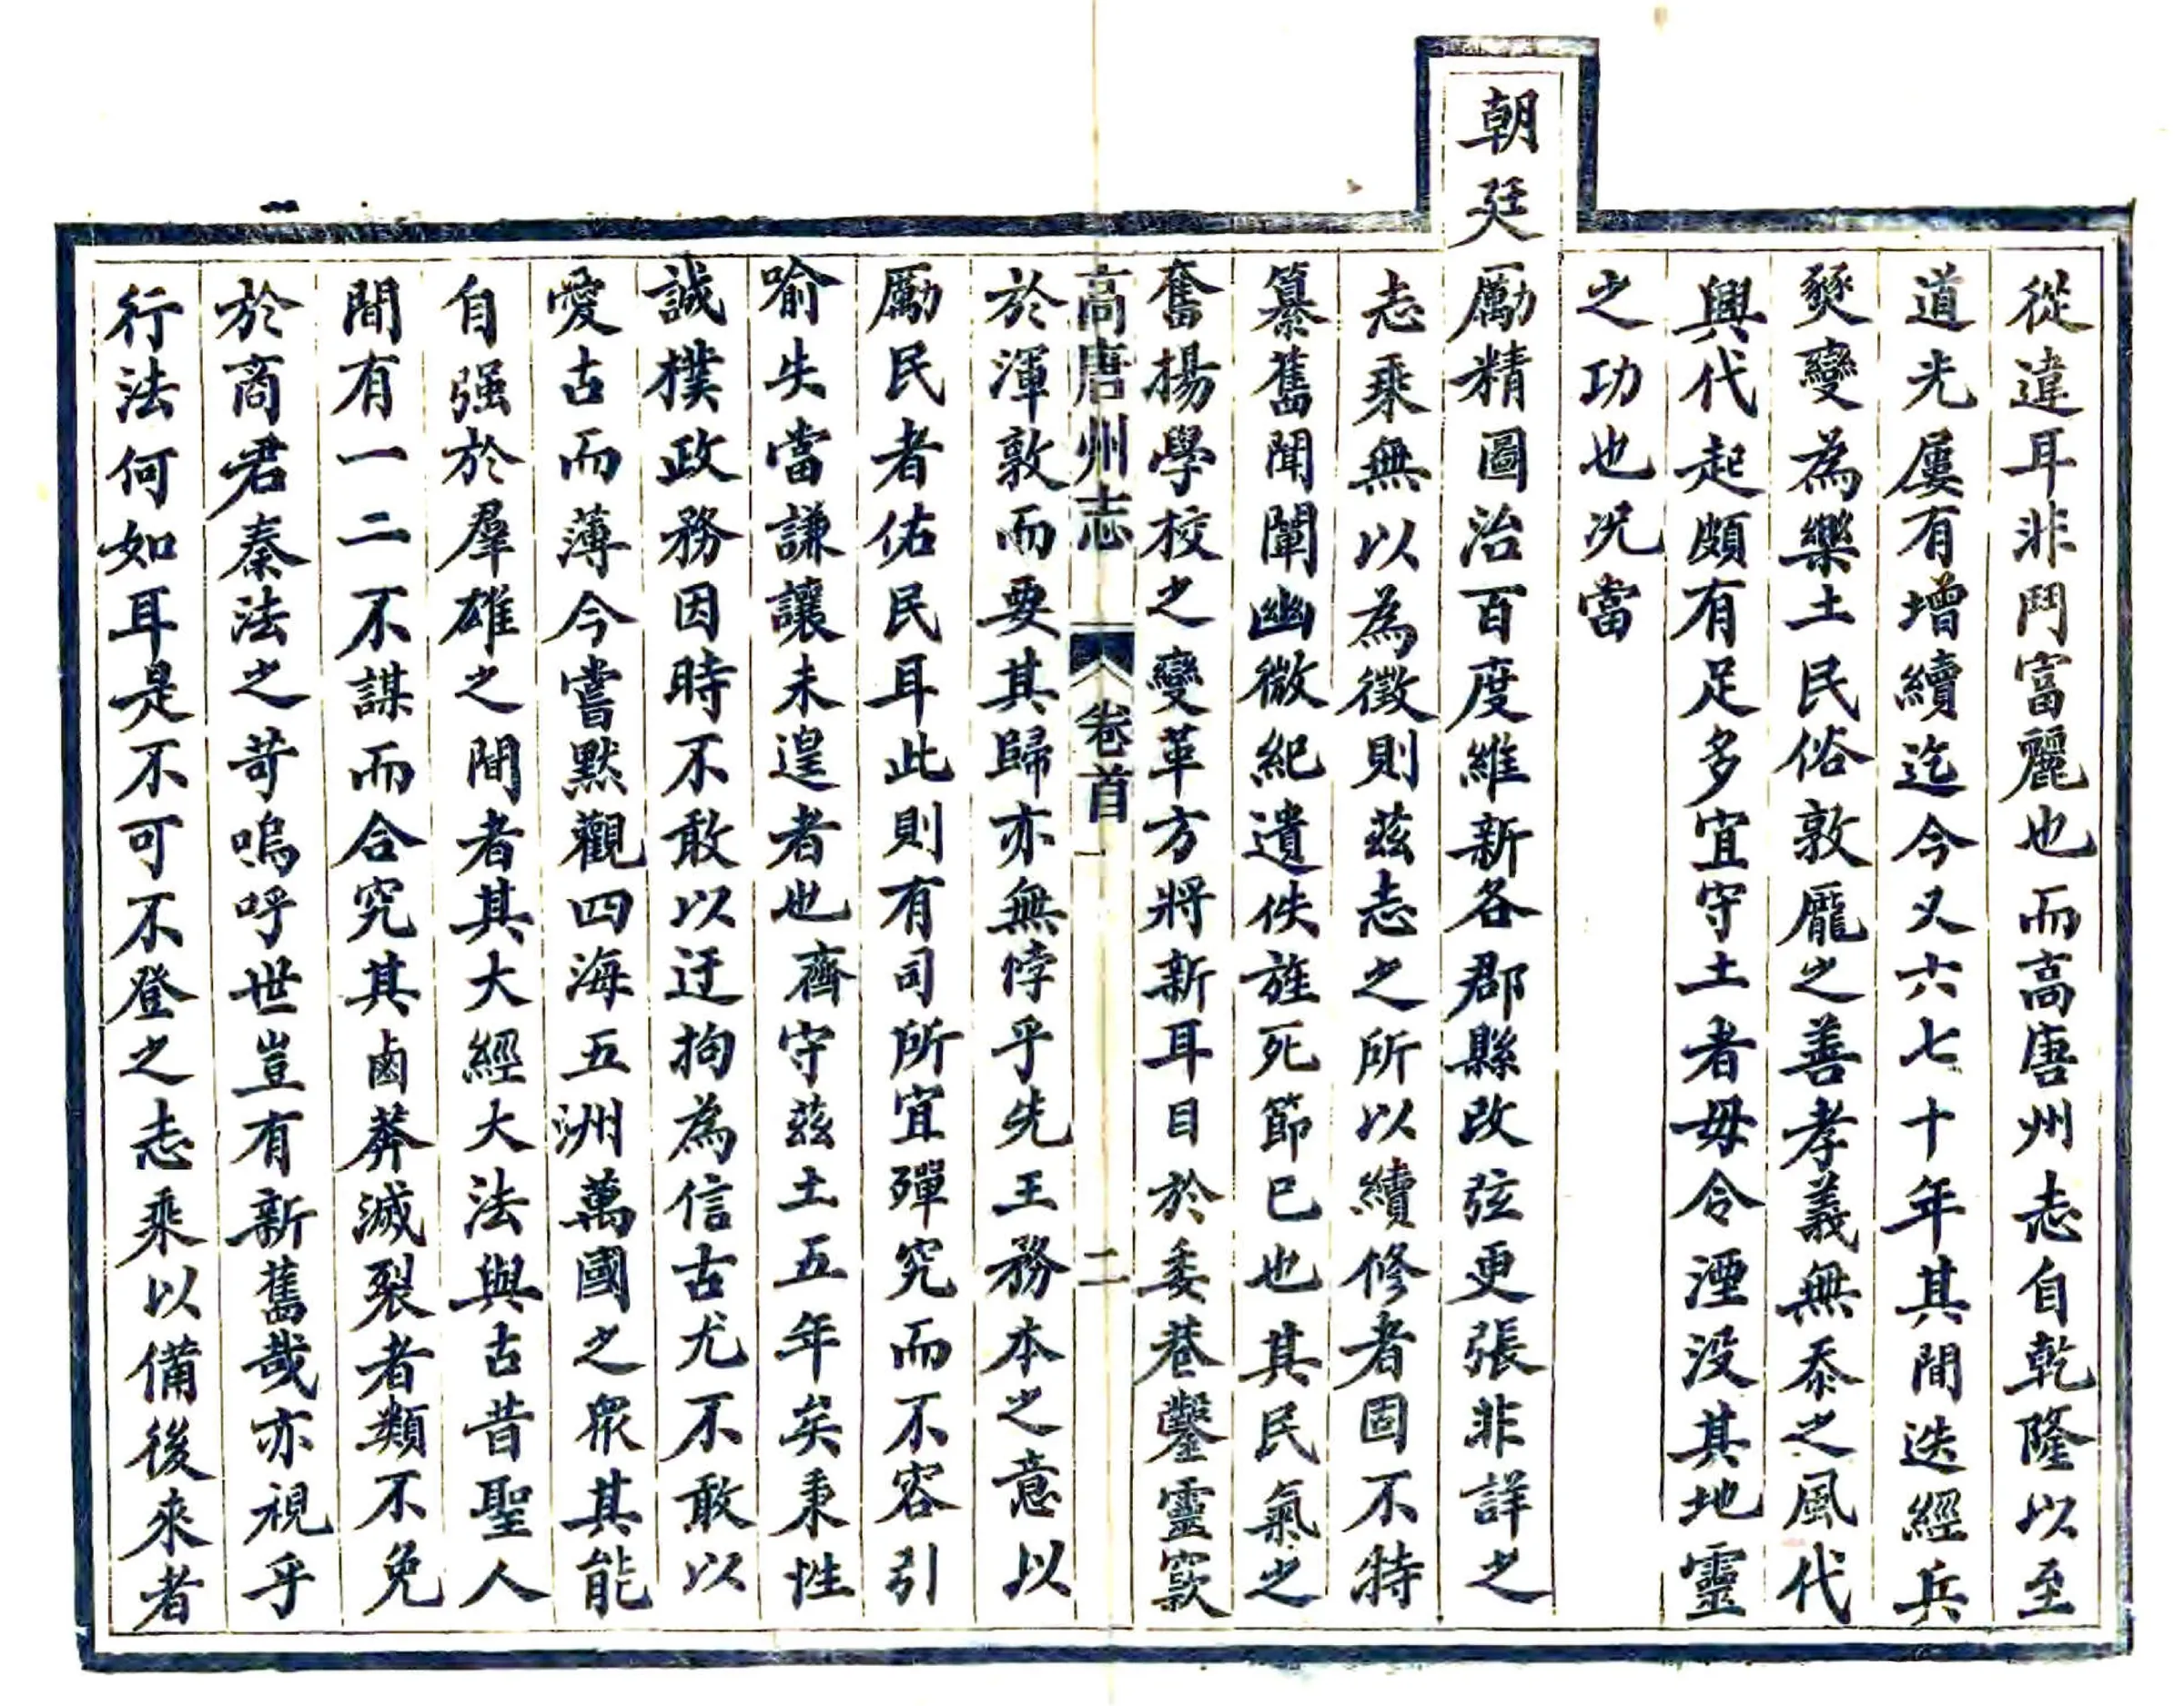 從違耳非鬥富麗也而高唐州志自乾隆以至
道光屢有增續迄今又六七十年其間迭經兵
燹變為樂土民俗敦龐之善孝義無忝之風代
興代起頗有足多宜守土者毋令湮没其地靈
之功也况當
朝廷厲精圖治百度維新各郡縣改弦更張非詳之
志乘無以為徵則茲志之所以續修者固不特
纂舊聞闡幽微紀遺佚旌死節已也其民氣之
奮揚學校之變革方將新耳目於委巷鑿靈窾
高唐州志 卷首 二
於渾敦而要其歸亦無悖乎先王務本之意以
勵民者佑民耳此則有司所宜殫究而不容引
喻失當謙讓未遑者也齊守茲土五年矣秉性
誠樸政務因時不敢以迂拘為信古尤不敢以
愛古而薄今嘗默觀四海五洲萬國之眾其能
自强於羣雄之間者其大經大法與古昔聖人
間有一二不謀而合究其鹵莽滅裂者類不免
於商君秦法之苛嗚呼世豈有新舊哉亦視乎
行法何如耳是不可不登之志乘以備後來者